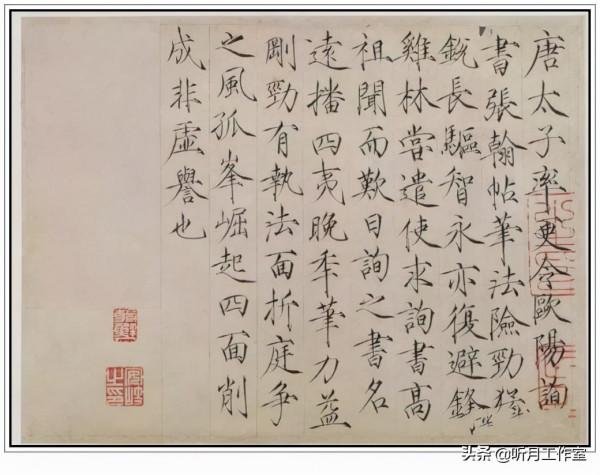 唐太子率更令歐陽詢
書張翰帖筆法險勁猛
銳長驅智永亦復避鋒
雞林嘗遣使求詢書高
祖聞而歎曰詢之書名
遠播四夷晚年筆力益
剛勁有執法面折庭爭
之風孤峯崛起四面削
成非虛譽也
头条 @听月工作室